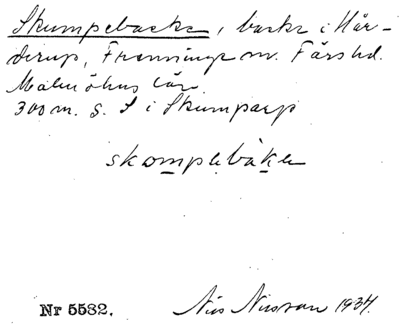 Skumpebacke, backe i Här-
derup, Frenninge sn. Färs hd.
Malmöhus län.
300 m. S. S i Skumparp
skompebakee
Nr 5582. Nils Nilsson 1937.